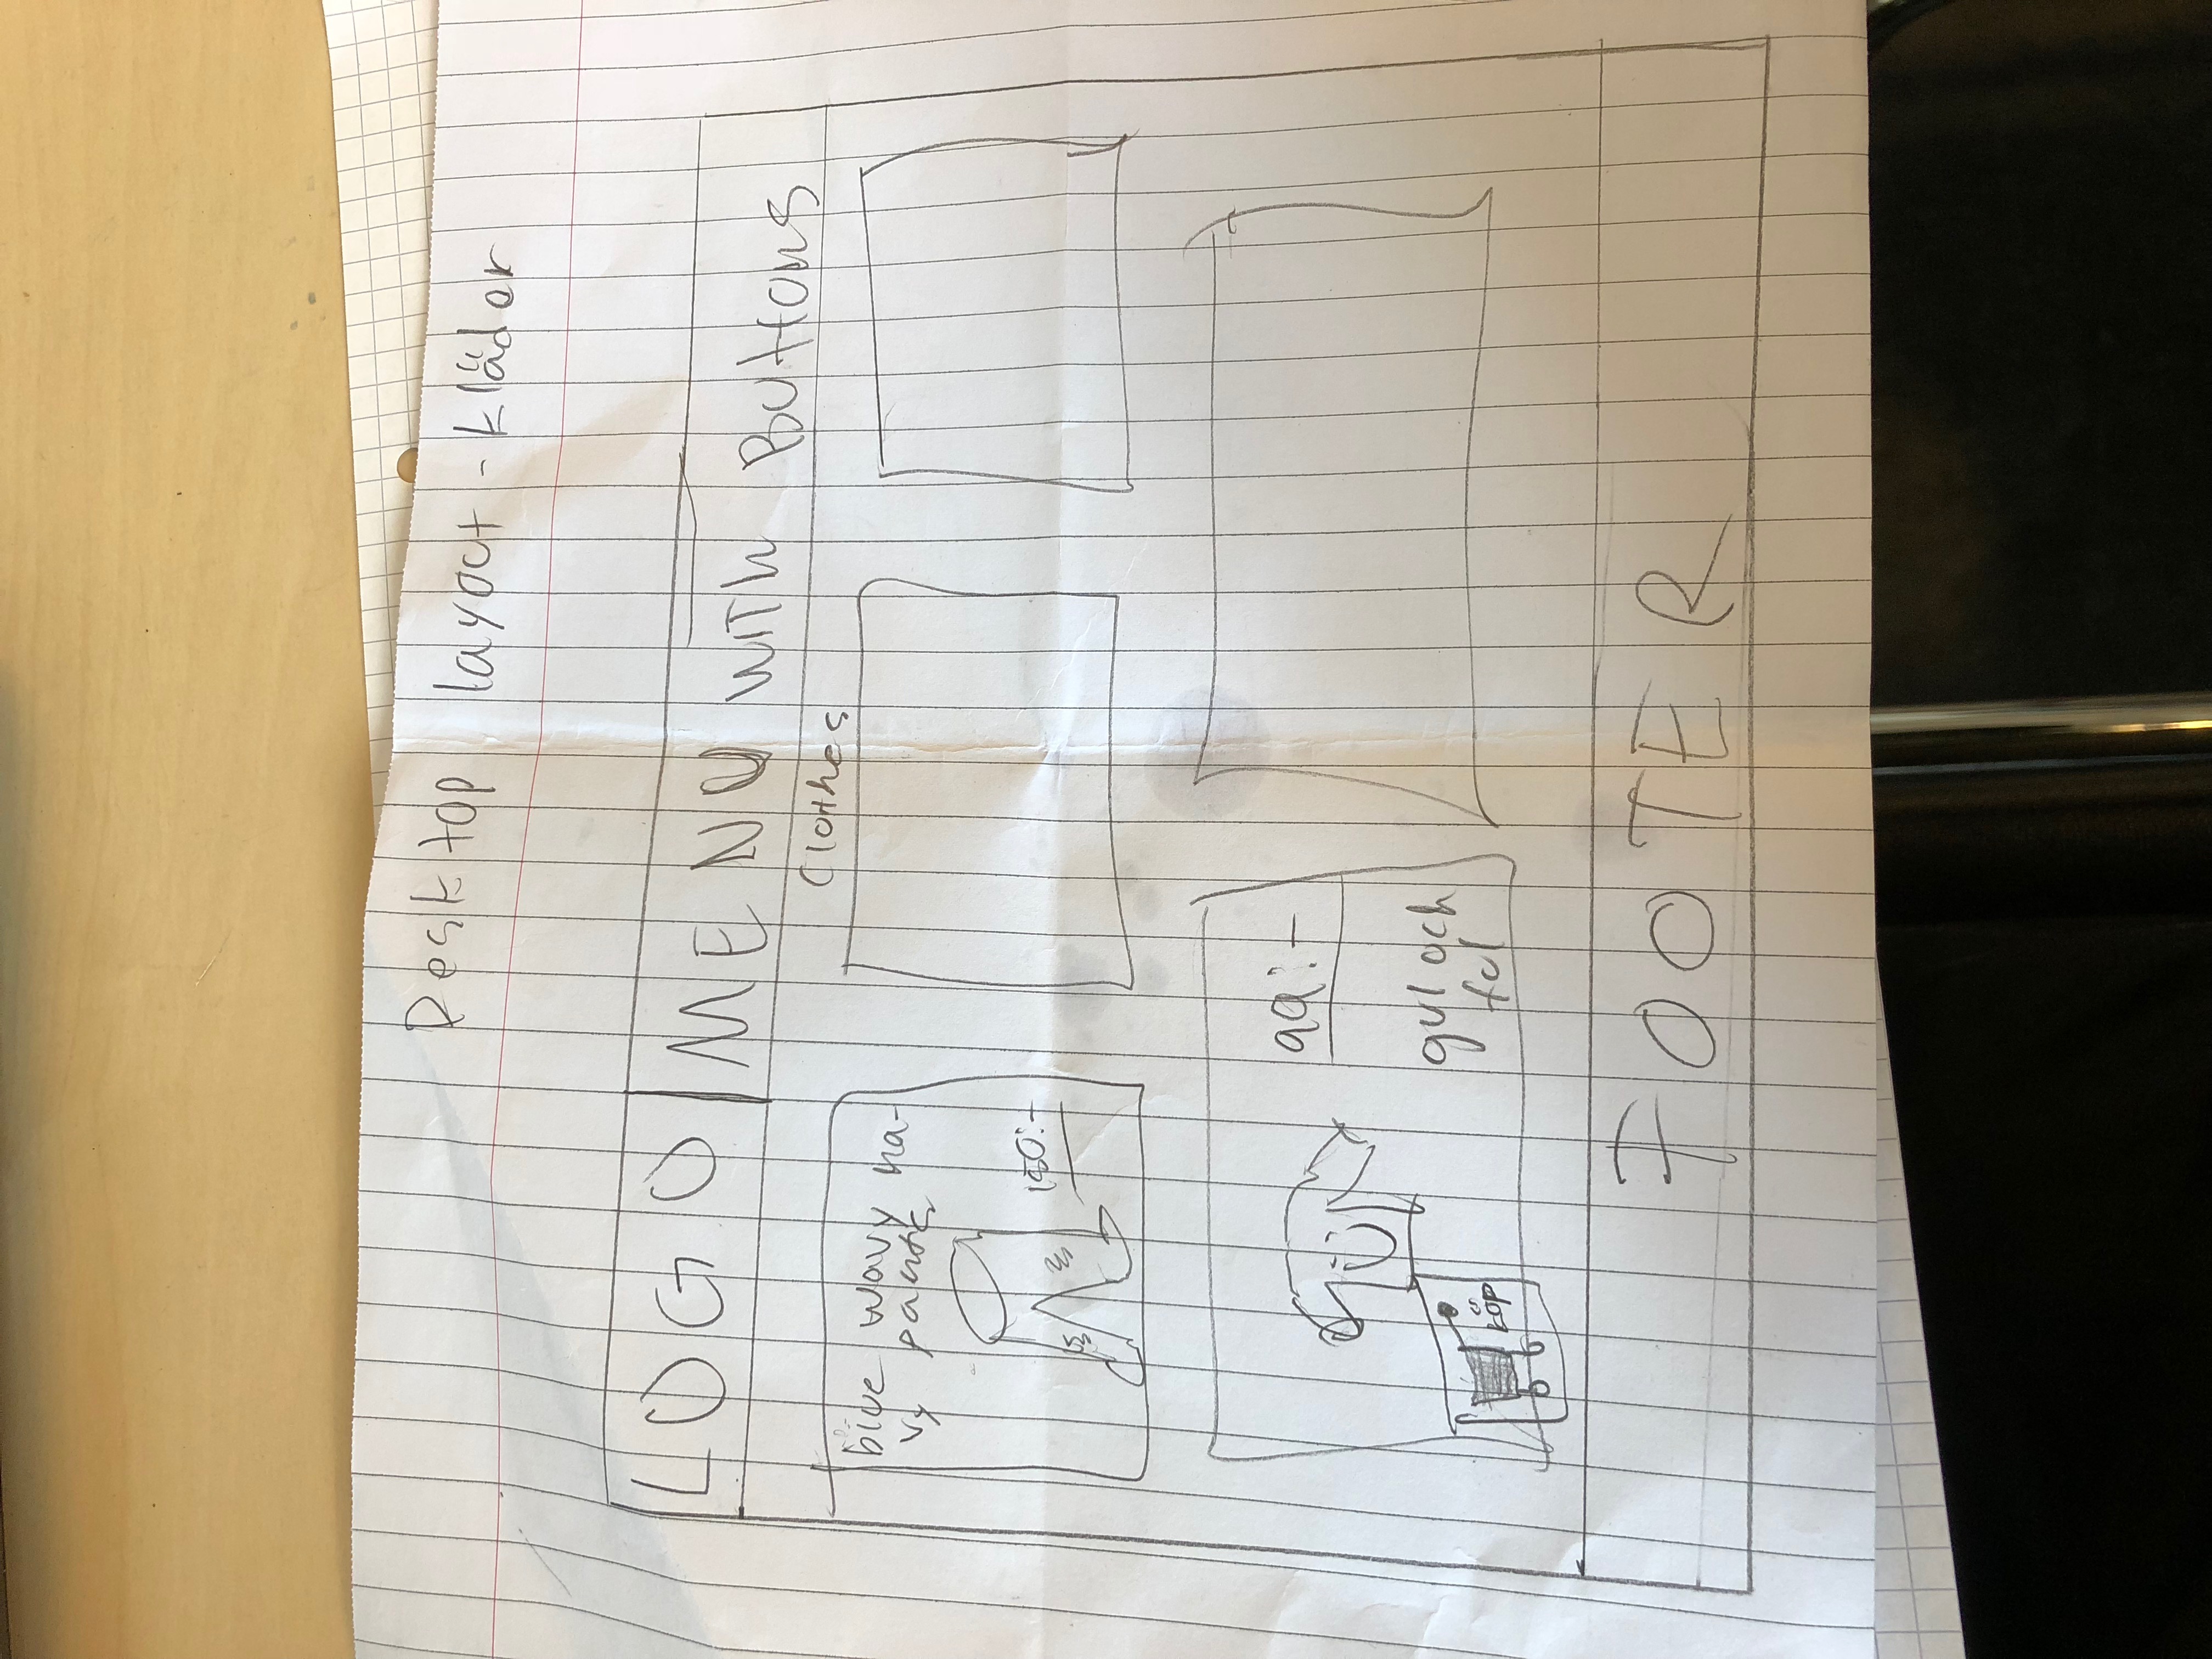 Desktop layout - kläder
LOGO MENU WITH Buttons
Clothes
blue wavy na-
vy pants
150:-
99:-
gul och
ful
köp
FOOTER